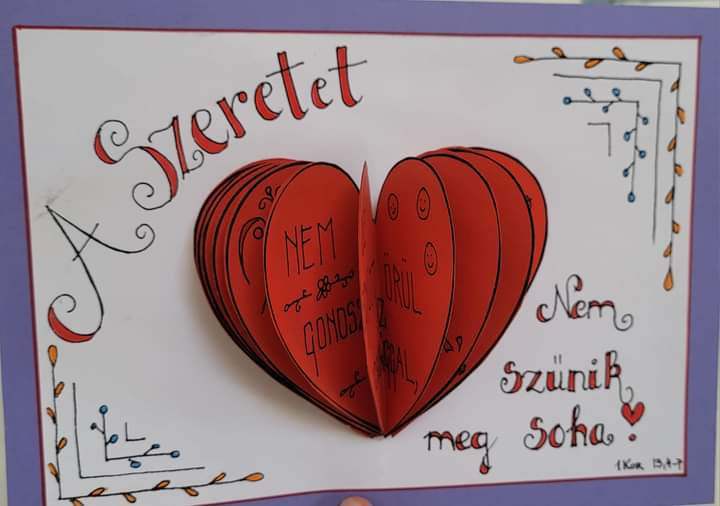 A Szeretet
NEM
GONOSZ
ÖRÜL
Nem
szűnik
meg soha!
1 Kor 13,4-7